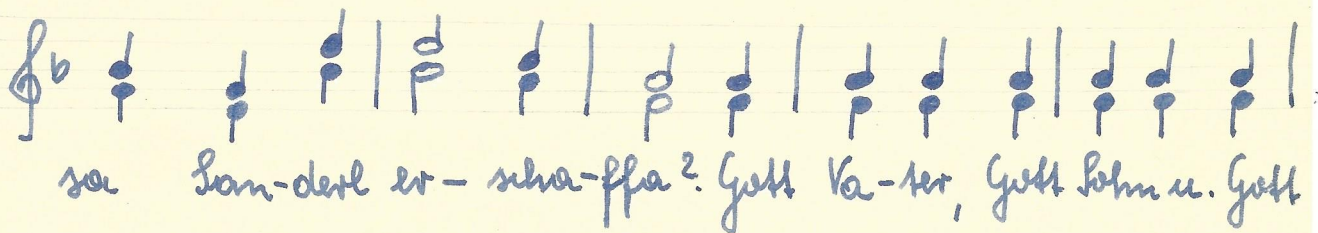 sa San-derl er-scha-ffa? Gott Va-ter, Gott Sohn u. Gott